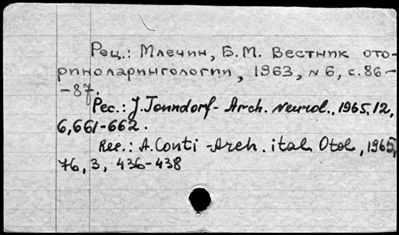 Рец.: Млечин, Б.М. Вестник ото-
риноларингологии, 1963, N 6, с. 86-
-87.
Рес.: J. Tonndorf - Arch. Neurol., 1965, 12,
6, 661-662.
Rec.: A. Conti - Arch. ital. Otol., 1965,
76, 3, 436-438